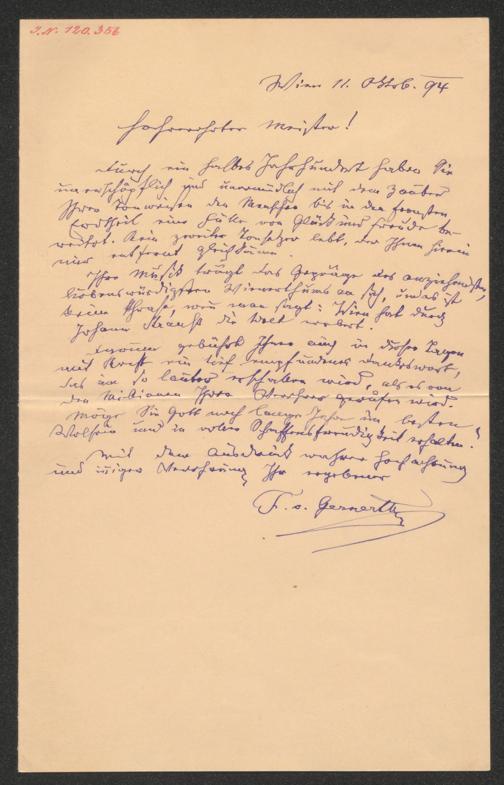 J.N. 120.356
Wien 11. Oktob. 94
Hochverehrter Meister!
Durch ein halbes Jahrhundert haben Sie
unerschöpflich und unermüdlich mit dem Zauber
Ihrer Tonweisen den Menschen bis in den fernsten
Erdtheil eine Fülle von Glück und Freude be-
reitet. Kein zweiter Tonsetzer lebt, der Ihnen hierin
nur entfernt gleichkäme.
Ihre Musik trägt das Gepräge des anziehendsten,
liebenswürdigsten Wienerthums an sich, und es ist
keine Phrase, wenn man sagt: Wien hat durch
Johann Strauss die Welt erobert.
Darum gebührt Ihnen auch in diesen Tagen
mit Recht ein tief empfundenes Dankeswort,
das um so lauter erschallen wird, als es von
den Millionen Ihrer Verehrer gerufen wird.
Möge Sie Gott noch lange Jahre im besten
Wolsein und in voller Schaffensfreudigkeit erhalten!
Mit dem Ausdruck wahrer Hochachtung
und inniger Verehrung Ihr ergebener
F. v. Gernerth